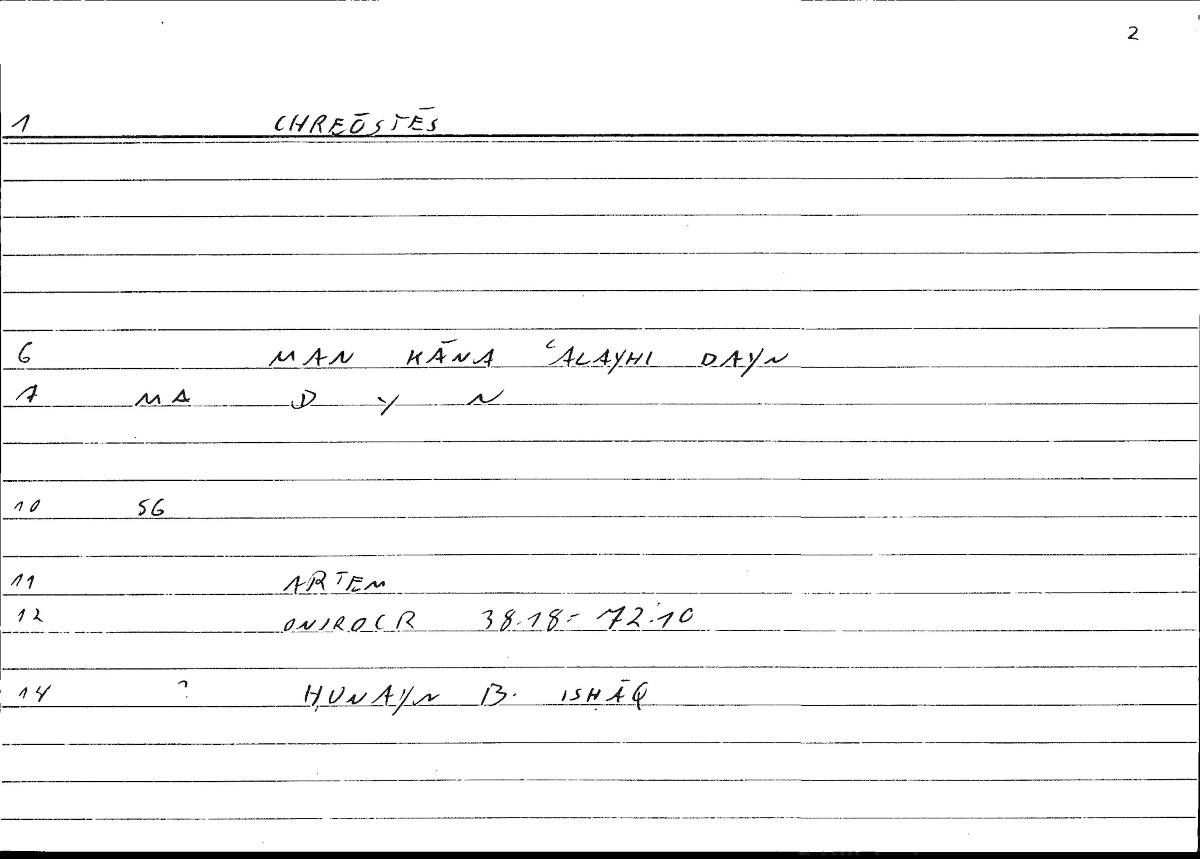 2
1 CHREŌSTĒS
6 MAN KĀNA ʿALAYHI DAYN
7 MA D Y N
10 56
11 ARTEM
12 ONIROCR 38.18 - 72.10
14 ? ḤUNAYN B. ISḤĀQ